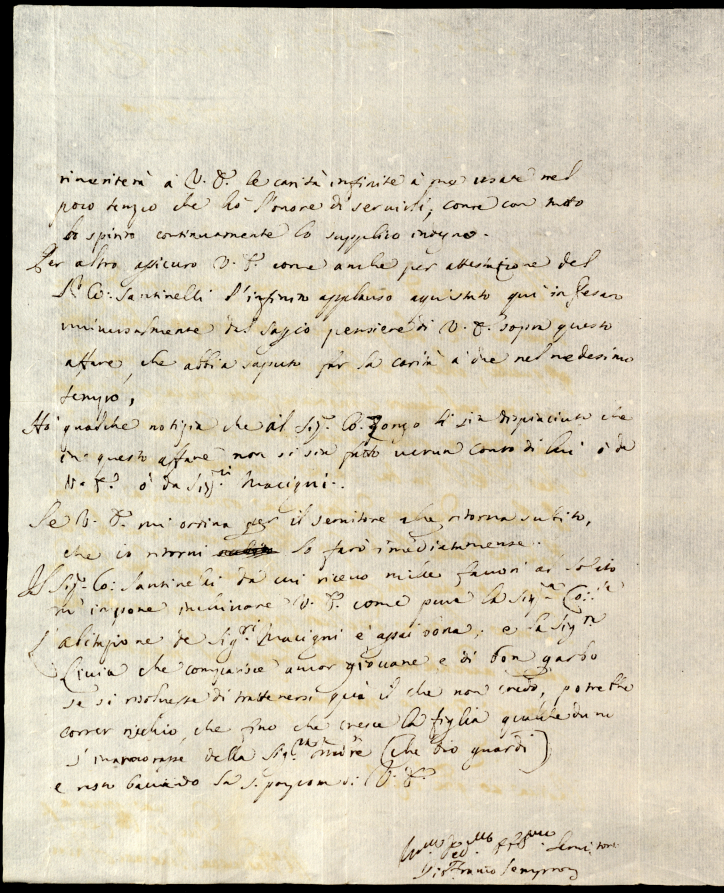 rimeriterà à V. E. le carità infinite à me usate nel
poco tempo che hò l'onore di servirti, come con tutto
lo spirito continuamente lo supplico indegno.
Per altro assicuro V. E. come anche per attestazione del
Sr. Co: Santinelli l'infinito applauso acquistato qui in Pesaro
universalmente dal saggio pensiere di V. E. sopra questo
affare, che abbia saputo far la carità a due nel medesimo
tempo,
Hò qualche notizia che al Sigr. Co. Zongo li sia dispiaciuto che
in questo affare non si sia fatto verun conto di lui ò da
V. E. ò da Sigri. Macigni.
Se V. E. mi ordina per il servitore che ritorna subito,
che io ritorni lo farò immediatamente.
Il Sigr. Co: Santinelli da cui ricevo mille favori al solito
m'impone inchinare V. E. come pure la Sigra. Co:
L'abitazione de Sigri. Macigni è assai bona, e la Sigra
Livia che comparisce ancor giovane e di bon garbo
se si risolvesse di trattenersi quà il che non credo, potrebbe
correr rischio, che fino che cresce la figlia qualcheduno
s'innamorasse della Sigra. Madre (che Dio guardi)
e resto baciando la s. porpora di V. E.
Servitore